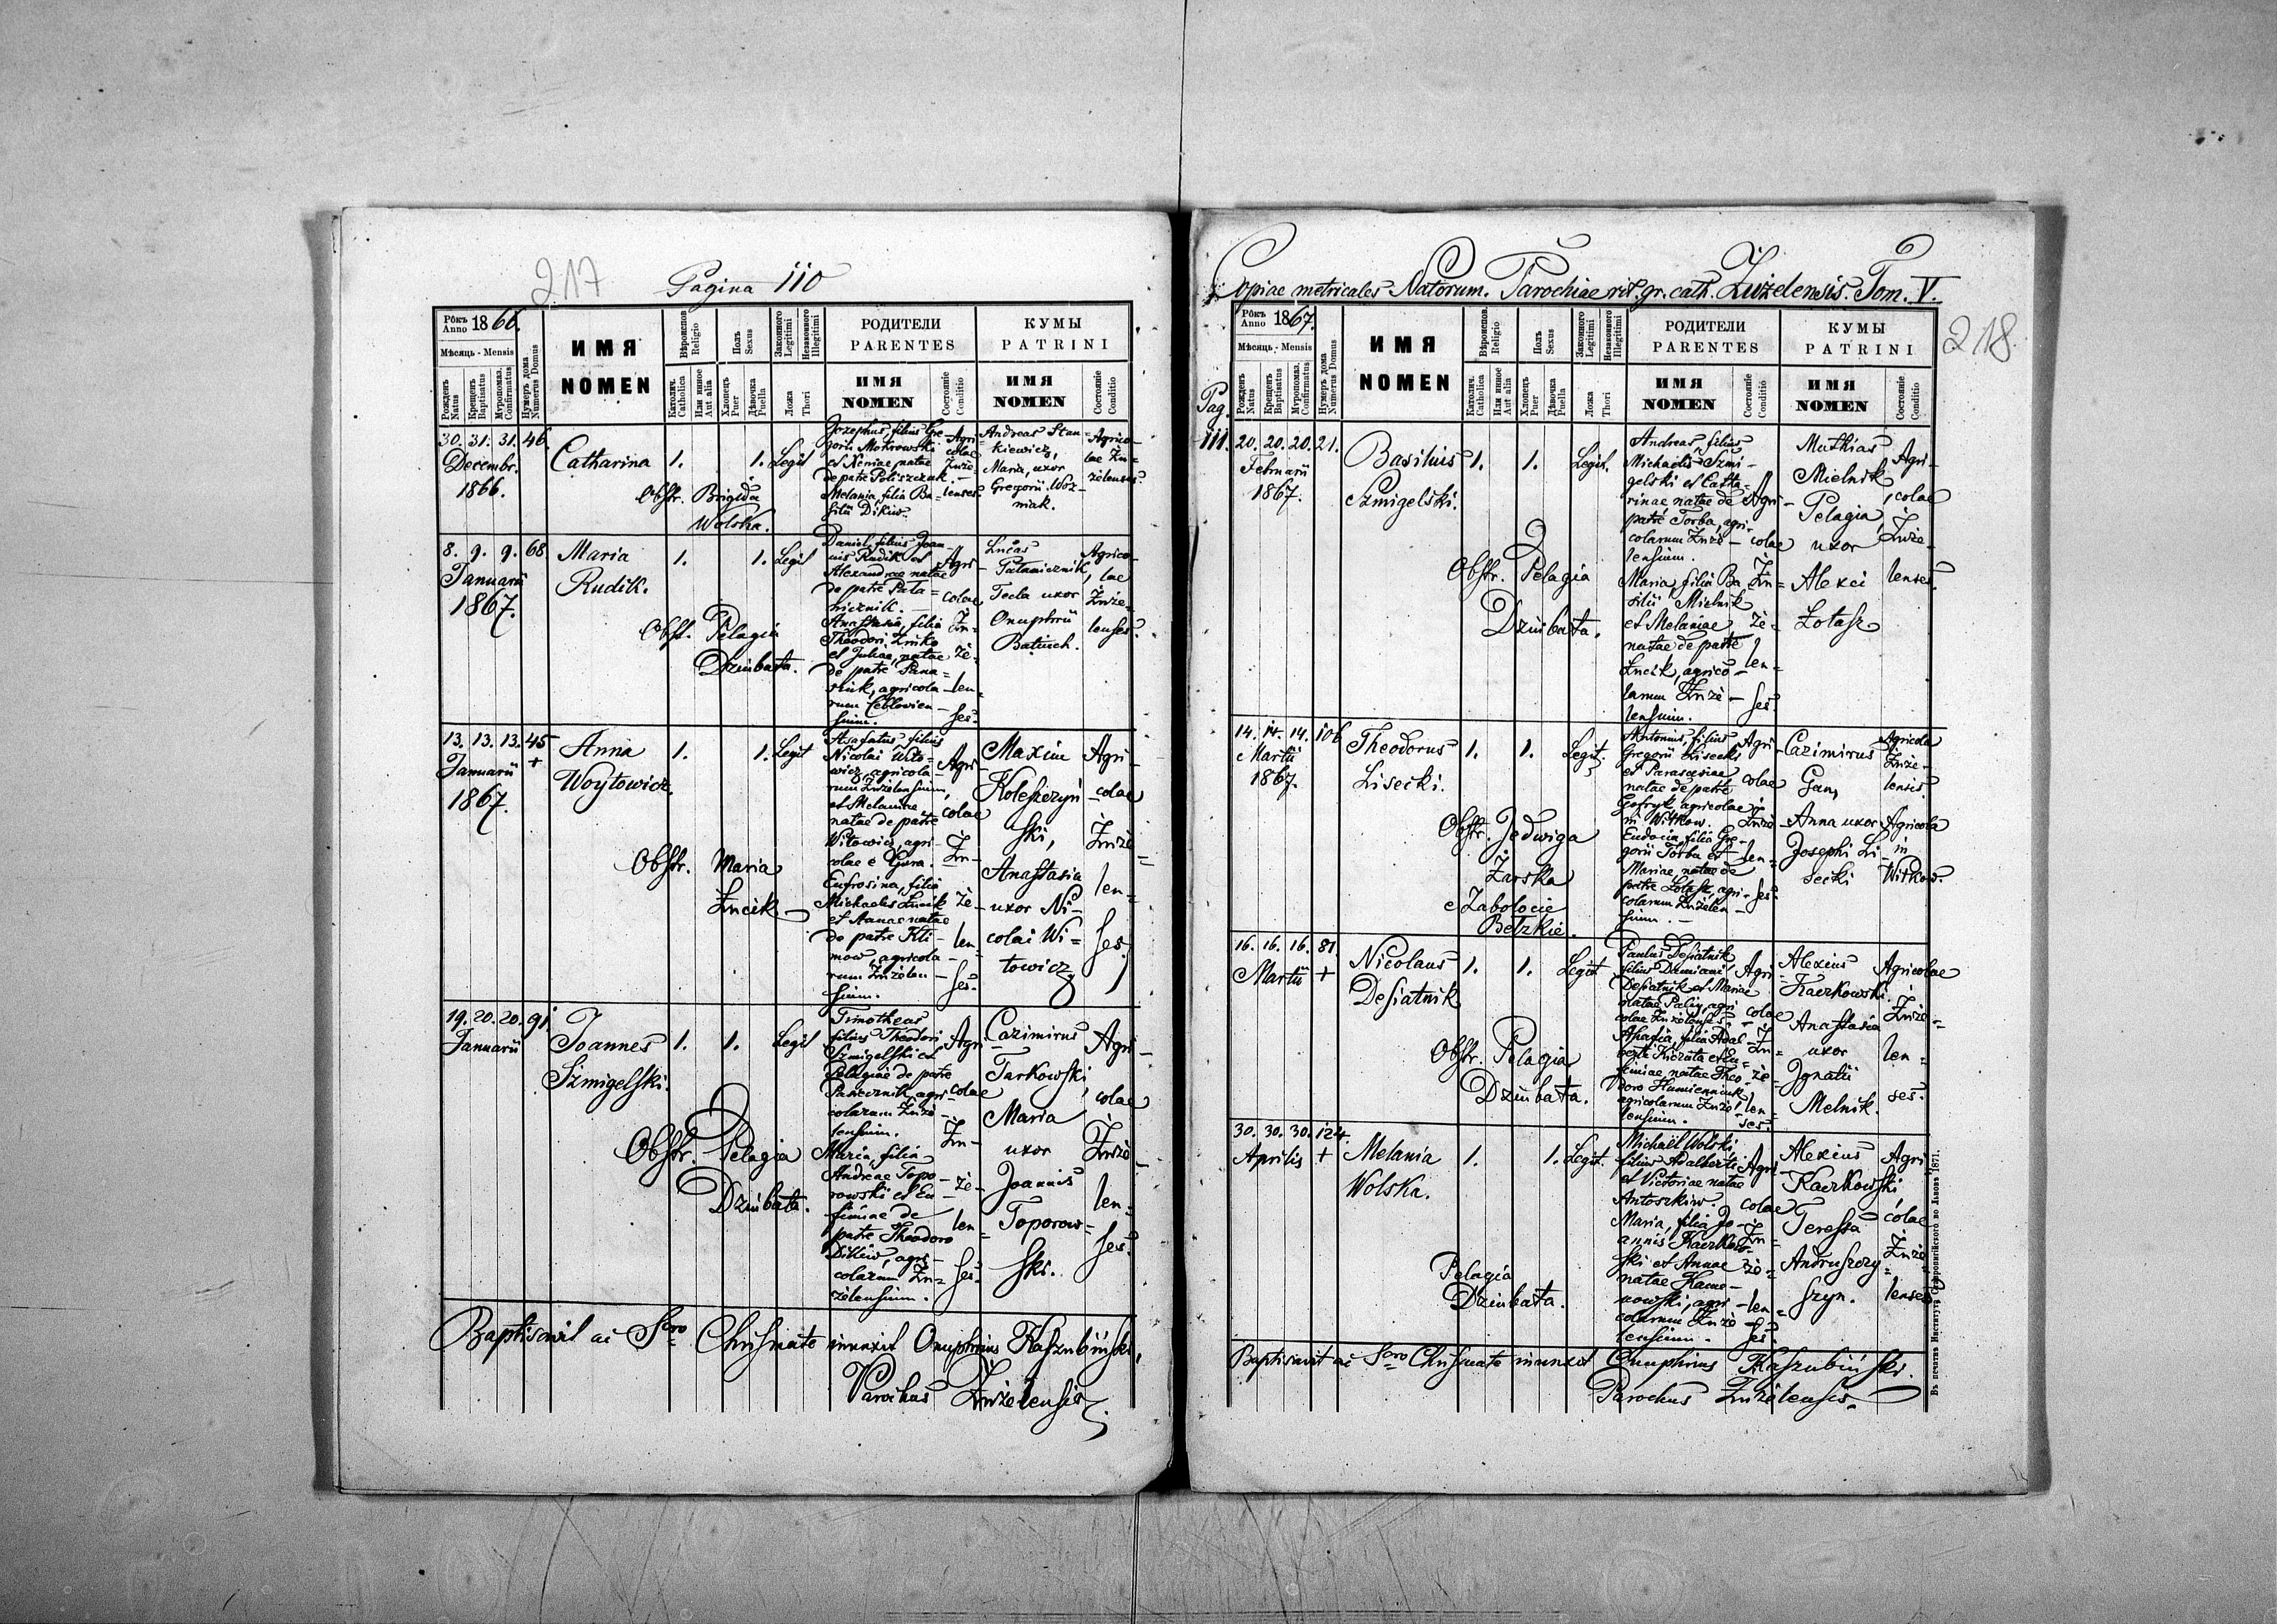 217
Pagina 110
Рôкъ Anno 1866.
Мѣсяць - Mensis
Рожденъ Natus
Крещенъ Baptisatus
Мѵропомаз. Confirmatus
Нумеръ дома Numerus Domus
ИМЯ
NOMEN
Вѣроиспов. Religio
Католич. Catholica
Или инное Aut alia
Полъ Sexus
Хлопець Puer
Дѣвочка Puella
Законного Legitimi
Незаконного Illegitimi
Ложа Thori
РОДИТЕЛИ
PARENTES
ИМЯ
NOMEN
Состояніе Conditio
КУМЫ
PATRINI
ИМЯ
NOMEN
Состояніе Conditio
30. 31. 31. 46.
Decembr.
1866.
Catharina
1. 1. Legit
Obstr. Brigida
Wolska.
Josephus, filius Gre-
gorii Mokrowski
et Xeniae, natae
de patre Poliszczuk. -
Melania, filia Ba-
silii Dikiw.
Agri-
colae
Zuże-
lenses
Andreas Stan-
kiewicz,
Maria, uxor
Gregorii Woz-
niak.
Agrico-
lae Zu-
żelenses
8. 9. 9. 68
Januarii
1867.
Maria
Rudik.
1. 1. Legit
Obst. Pelagia
Dziubata.
Daniel, filius Joan-
nis Rudik et
Alexandrae natae
de patre Pala-
nicznik. -
Anastasia, filia
Theodori Zinko
et Juliae, natae
de patre Pana-
siuk, agricola-
rum Ceblovien-
sium.
Agri-
colae
Zu-
że-
len-
ses.
Lucas
Palanicznik,
Tecla uxor
Onuphrii
Batiuch.
Agrico-
lae
Zuże-
lenses.
13. 13. 13. 45
+
Januarii
1867.
Anna
Woytowicz.
1. 1. Legit
Obstr. Maria
Łucik
Asafatus, filius
Nicolai Wito-
wicz, agricola-
rum Zużelensium,
et Melaniae,
natae de patre
Witowicz, agri-
colae e Gura.
Eufrosina, filia
Michaelis Łucik
et Annae natae
de patre Kli-
mow, agricola-
rum Zużelen-
sium.
Agri-
colae
Zu-
że-
len-
ses.
Maxim
Kolesiczyń-
ski,
Anastasia
uxor Ni-
colai Wi-
towicz
Agri-
colae
Zuże-
len-
ses.
19. 20. 20. 91.
Januarii
Joannes
Szmigelski.
1. 1. Legit
Obstr. Pelagia
Dziubata.
Timotheus
filius Theodori
Szmigelski et
Pelagiae de patre
Panczznik, agri-
colarum Zuże-
lensium.
Maria, filia
Andreae Topo-
rowski et Eu-
fimiae de
patre Theodoro
Dikiw, agri-
colarum Zu-
żelensium.
Agri-
colae
Zu-
że-
len-
ses.
Cazimirus
Tarkowski,
Maria
uxor
Joannis
Toporow-
ski.
Agri-
colae
Zuże-
len-
ses.
Baptisavit ac Scro Chrismate inunxit Onuphrius Kaszubiński,
Parochus Zużelensis.
Copiae metricales Natorum. Parochiae rit. gr. cath. Zużelensis. Tom. V.
218.
Pag.
111.
Рôкъ Anno 1867.
Мѣсяць - Mensis
Рожденъ Natus
Крещенъ Baptisatus
Мѵропомаз. Confirmatus
Нумеръ дома Numerus Domus
ИМЯ
NOMEN
Вѣроиспов. Religio
Католич. Catholica
Или инное Aut alia
Полъ Sexus
Хлопець Puer
Дѣвочка Puella
Законного Legitimi
Незаконного Illegitimi
Ложа Thori
РОДИТЕЛИ
PARENTES
ИМЯ
NOMEN
Состояніе Conditio
КУМЫ
PATRINI
ИМЯ
NOMEN
Состояніе Conditio
20. 20. 20. 21.
Februarii
1867.
Basilius
Szmigelski.
1. 1. Legit.
Obstr. Pelagia
Dziubata.
Andreas, filius
Michaelis Szmi-
gelski et Catha-
rinae natae de
patre Torba, agri-
colarum Zuże-
lensium.
Maria, filia Ba-
silii Mielnik
et Melaniae
natae de patre
Łucik, agrico-
larum Zuże-
lensium.
Agri-
colae
Zu-
że-
len-
ses
Mathias
Mielnik,
Pelagia,
uxor
Alexei
Łotasz
Agri-
colae
Zuże-
lenses.
14. 14. 14. 106
Martii
1867.
Theodorus
Lisecki.
1. 1. Legit.
Obstr. Jedwiga
Żarska
e Zabolocie
Bełzkie.
Antonius, filius
Gregorii Lisecki
et Parasceviae
natae de patre
Gofryk, agricolae
in Witkow.
Eudocia, filia Gre-
gorii Torba et
Mariae, natae de
patre Łotasz, agri-
colarum Zużelen-
sium. -
Agri-
colae
in
Zuże-
len-
ses.
Cazimirus
Gan,
Anna uxor
Josephi Li-
secki
Agricola
Zuże-
lensis.
Agricola
in
Witkow.
16. 16. 16. 81.
Martii +
Nicolaus
Desiatnik
1. 1. Legit
Obstr. Pelagia
Dziubata.
Paulus Desiatnik
filius Damiani
Desiatnik et Mariae
natae Paliy, agri-
colae Zużelenses.
Ahafia, filia Adal-
berti Kiczuta et Eu-
femiae, natae Theo-
doro Humienniuk,
agricolarum Zuże-
lensium.
Agri-
colae
Zu-
że-
len-
ses.
Alexius
Kaczkowski.
Anastasia
uxor
Ignatii
Melnik.
Agricolae
Zuże-
len-
ses.
30. 30. 30. 124.
Aprilis +
Melania
Wolska.
1. 1. Legit.
Pelagia
Dziubata.
Michaël Wolski,
filius Adalberti
et Victoriae natae
Antoszkiw.
Maria, filia Jo-
annis Kaczkow-
ski et Annae
natae Hame-
nowski, agri-
colarum Zuże-
lensium.
Agri-
colae
Zu-
że-
len-
ses.
Alexius
Kaczkowski,
Teressa
Andruszczy-
szyn.
Agri-
colae
Zuże-
lenses
Baptisavit ac Scro Chrismate inunxit Onuphrius Kaszubiński.
Parochus Zużelensis.
Въ печатнѣ Института Ставропигійского во Львовѣ 1871.